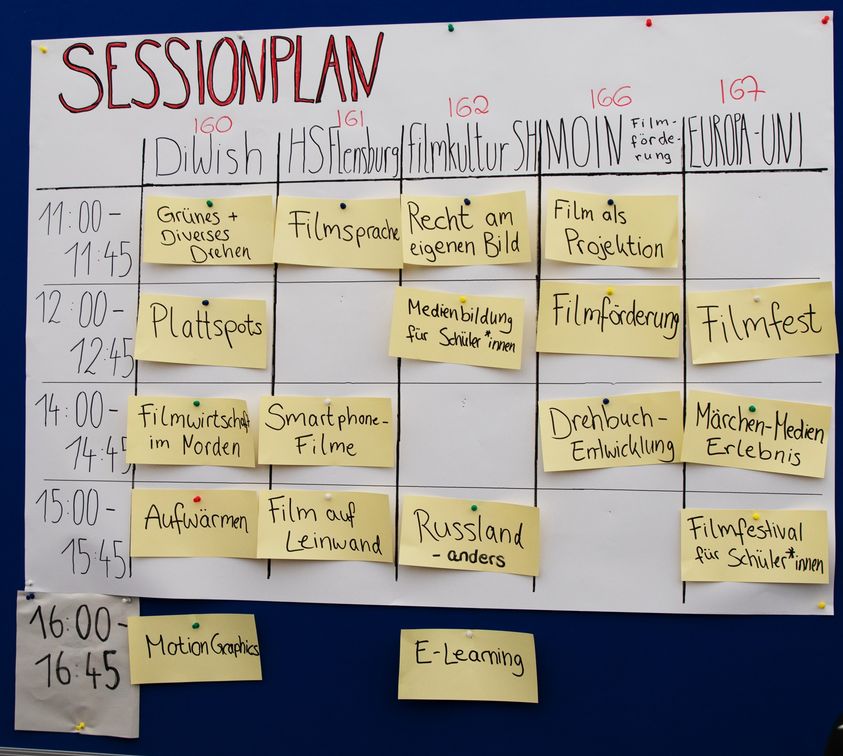 SESSIONPLAN
160 161 162 166 167
DiWish HSFlensburg filmkultur SH MOIN Film-
förde-
rung EUROPA-UNI
11:00-
11:45
Grünes +
Diverses
Drehen
Filmsprache
Recht am
eigenen Bild
Film als
Projektion
12:00-
12:45
Plattspots
Medienbildung
für Schüler*innen
Filmförderung
Filmfest
14:00-
14:45
Filmwirtschaft
im Norden
Smartphone-
Filme
Drehbuch-
Entwicklung
Märchen-Medien
Erlebnis
15:00-
15:45
Aufwärmen
Film auf
Leinwand
Russland
- anders
Filmfestival
für Schüler*innen
16:00-
16:45
Motion Graphics
E-Learning